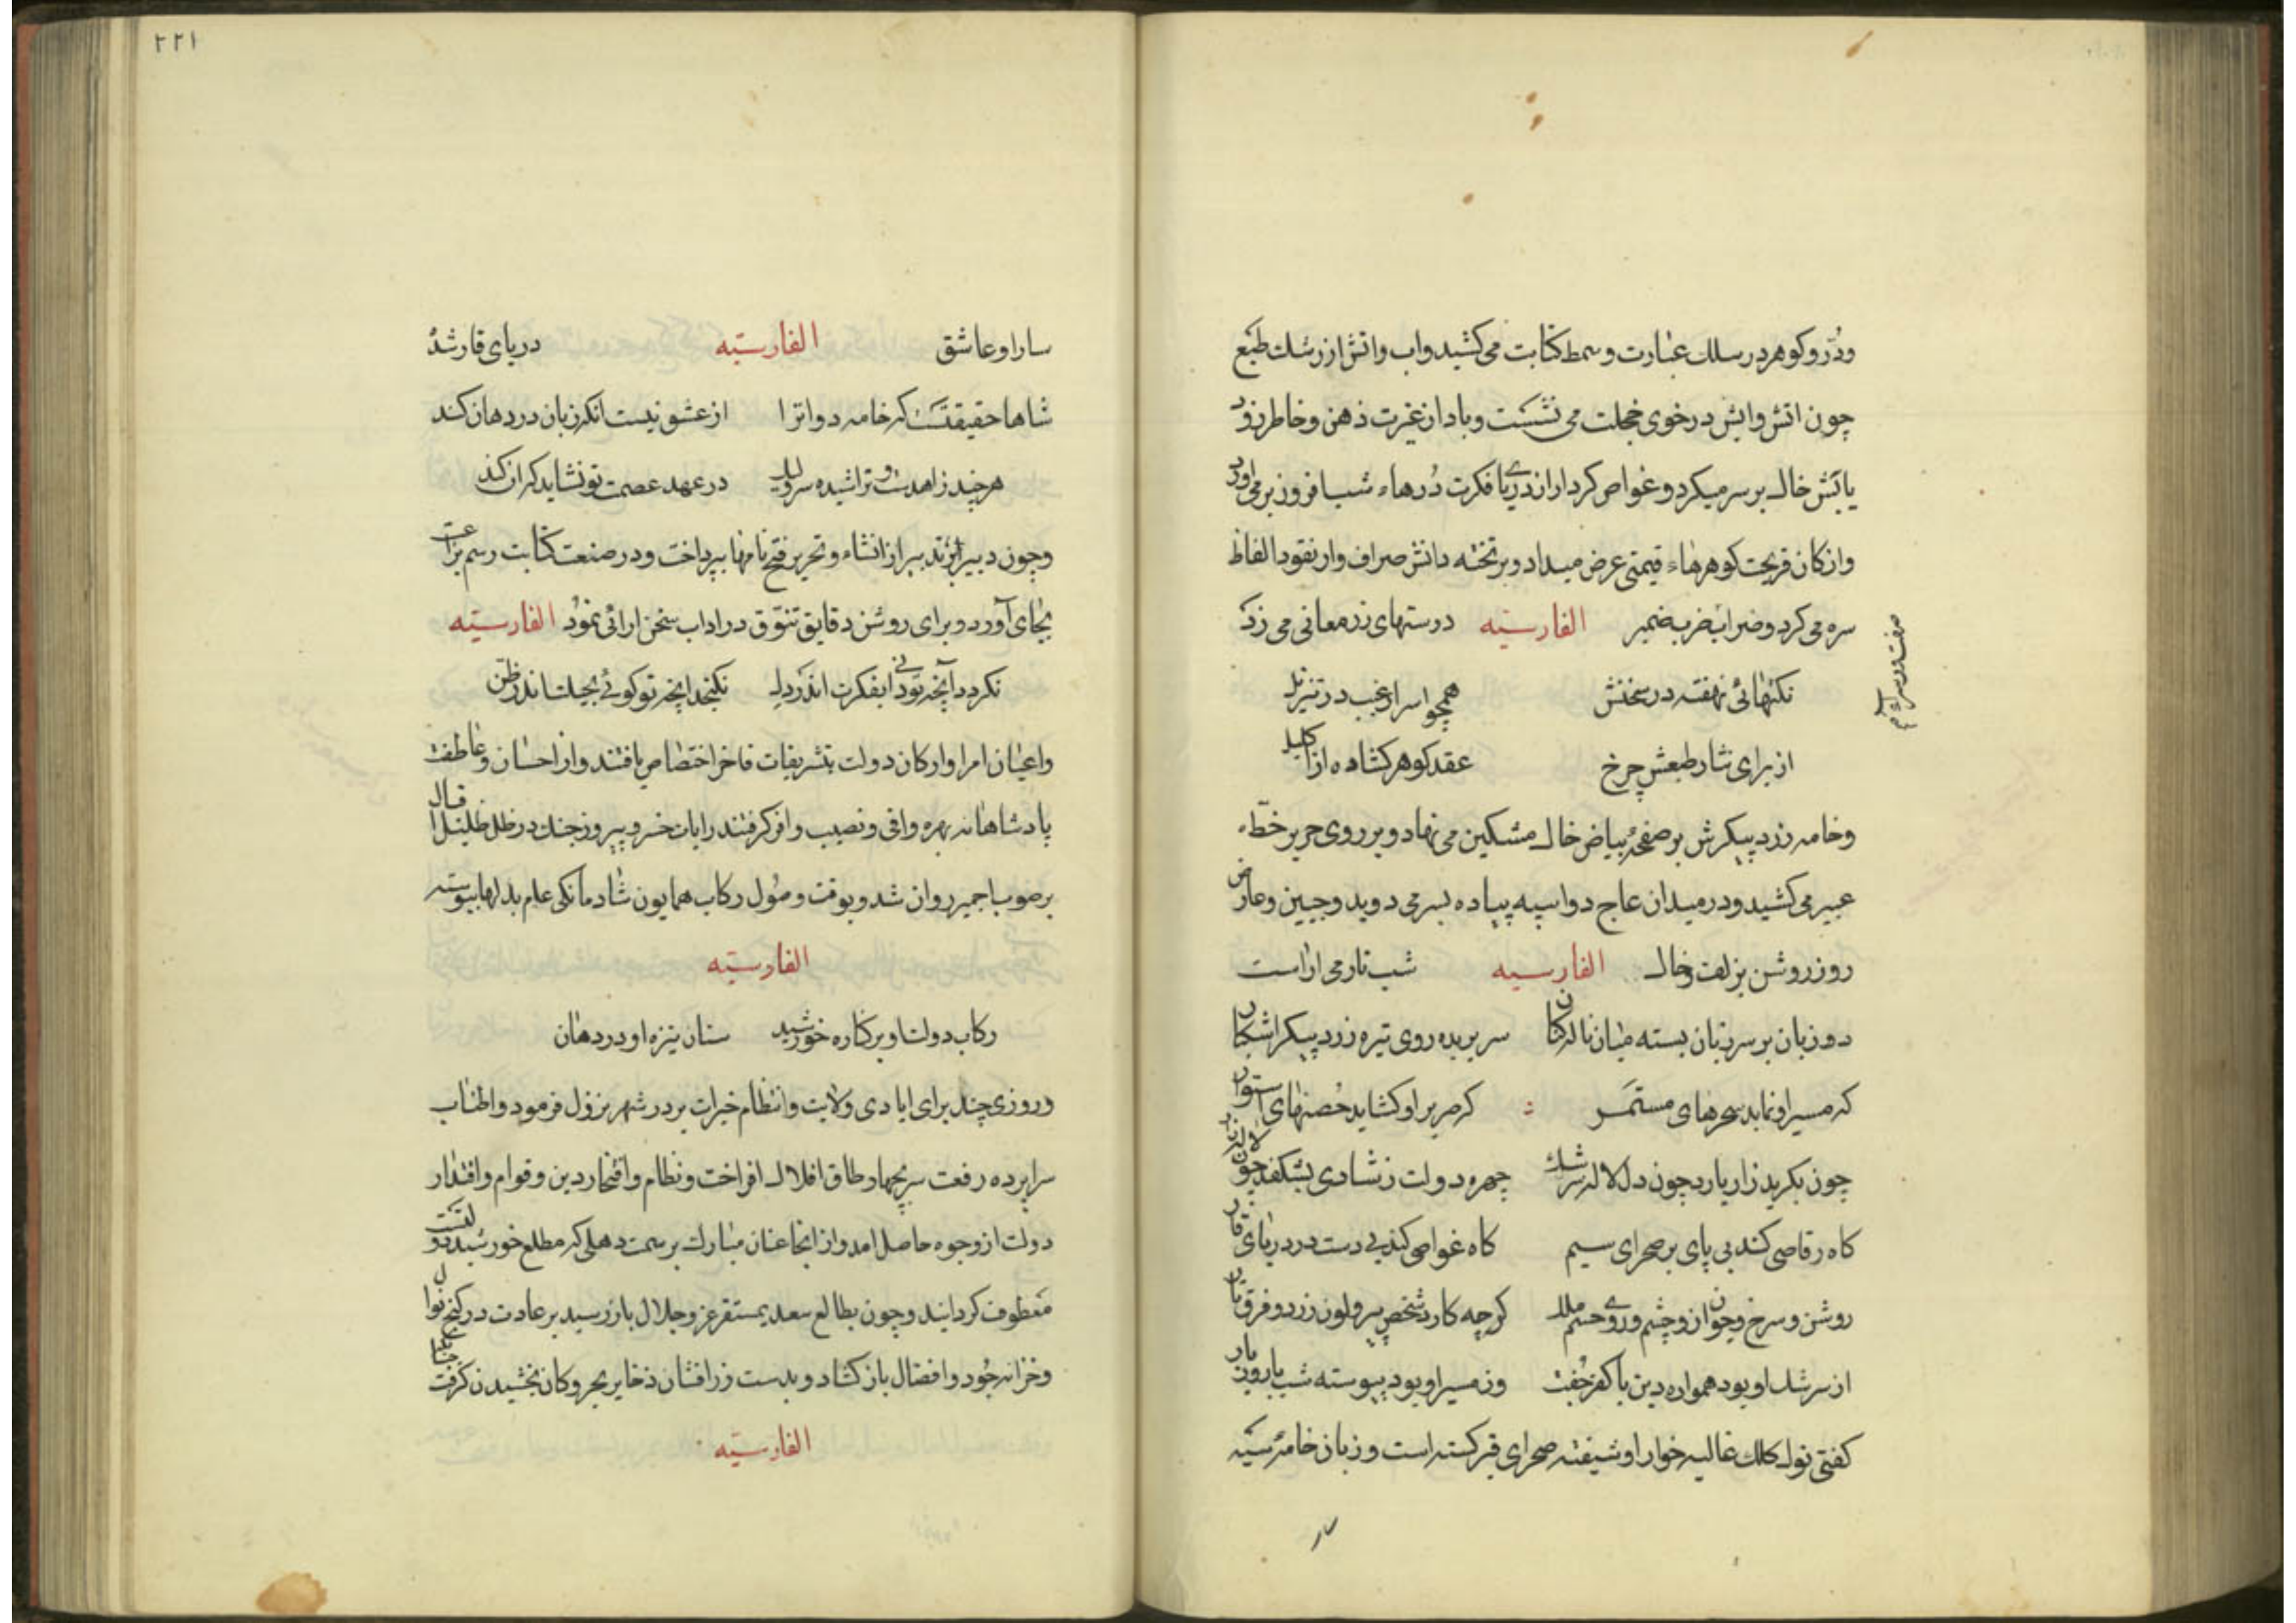 ودُرّ و کوهر در سلک عبارت و سمط کتابت می کشید و اب و اتش از رشک طبع
چون اتش وابش در خوی خجلت می نشست و باد از غیرت ذهن و خاطر زود
یابش خاک بر سر میکرد و غواص کردار از دریا فکرت دُرهاء شب افروز بر می اورد
واز کان قریحت کوهرهاء قیمتی عرض میداد و بر تخته دانش صراف وار نقود الفاظ
سره می کرد و ضراب ضرب ضمیر الفارسیّه درستهای زر معانی می زد
نکتهائی نهفته در سخنش همچو اسرار غیب در تنزیل
از برای نثار طبعش چرخ عقد کوهر کشاده از اکلیل
وخامه زرد پیکرش بر صفحهٔ بیاض خال مشکین می نهاد و بر روی حریر خطّ
عبیر می کشید و در میدان عاج دواسپه پیاده بسر می دوید و جبین و عارض
روز روشن بزلف و خال الفارسیه شب تار می اراست
دو زبان بر سر زبان بسته میان ناله کنان سر بریده روی تیره زرد پیکر اشکبار
که مسیر او نماید سحرهای مستمر که صریر او کشاید حُصنهای استوار
چون بکرید زار یارد چون دل لاله سرشک چهره دولت زشادی بشکفد چون لاله زار
کاه رقاصی کند بی پای بر صحرای سیم کاه غواصی کند بی دست در دریای قار
روشن و سرخ و جوان زو چشم و روی و جسم ملک کرچه کارد شخص پیر و لون زرد و فرق تار
از سرشک او بود همواره دین با کفر جُفت وز مسیر او بود پیوسته شب با روز یار
کفتی نوک کلک غالیه خوار او شیفته صحرای قیر کشته است و زبان خامهٔ سیه
صفت دوسرای قلم
۲۲۱
سار او عاشق الفارسیّه دریای قار شد
شاها حقیقتست که خامه دواترا از عشق نیست انکه زبان در دهان کند
هرچند زاهدست و تراشیده سر ولیک در عهد عصمت تو نشاید که ان کند
وچون دبیر از تدبیر از انشاء و تحریر فتح نامها بپرداخت و در صنعت کتابت رسم براعت
بجای آورد و برای روشن دقایق تنوّق در اداب سخن ارائی نمود الفارسیّه
نکردد آنچه تو دانی بفکرت اندر دل نکنجد انچه تو کوئی بحیلت اندر ظنّ
واعیان امرا و ارکان دولت بتشریفات فاخر اختصاص یافتند و از احسان و عاطفت
پادشاهانه بهره وافی و نصیب وافر کرفتند رایات خسرو پیروز جنک در ظل ظلیل اقبال
بر صوب اجمیر روان شد و بوقت وصول رکاب همایون شادمانکی عام بدلها پیوسته
الفارسیّه
رکاب دولت او بر کناره خورشید سنان نیزه او در دهان
وروزی چند برای ایادی ولایت و انتظام خیرات بر در شهر نزول فرمود و اطناب
سراپرده رفعت بر چهار طاق افلاک افراخت و نظام و افتخار دین و قوام و اقتدار
دولت از وجوه حاصل امد و از انجا عنان مبارک بر سمت دهلی که مطلع خورشید دولتست
معطوف کردانید و چون بطالع سعد بمستقر عز و جلال باز رسید بر عادت در کنج نوال
وخزانه جُود و افضال باز کشاد و بدست زرافشان ذخایر بحر و کان بخشیدن کرفت
الفارسیّه